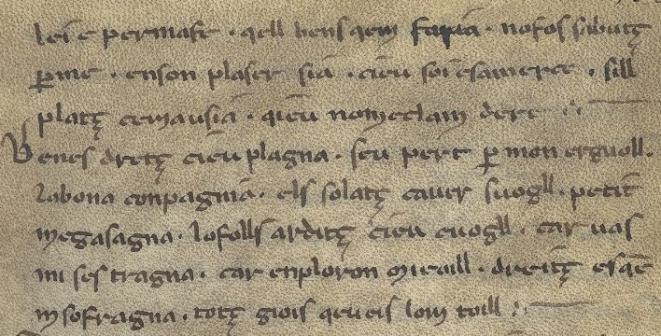 lei e permafe · qell bensqem faria · nofos sabutz
ꝑ me · enson plaser sia · cieu soi esamerce · sill
platz cemausia · qieu nomeclam dere
Benes dretz cieu plagna · seu pert ꝑ mon erguoll ·
labona conpagnia · els solatz cauer suogll · petit
megasagna · lofolls arditz cieu cuogll · car uas
mi ses tragna · car enploron mieaill · dreitz es qe
msofragna · totz giois qeueis lom toill